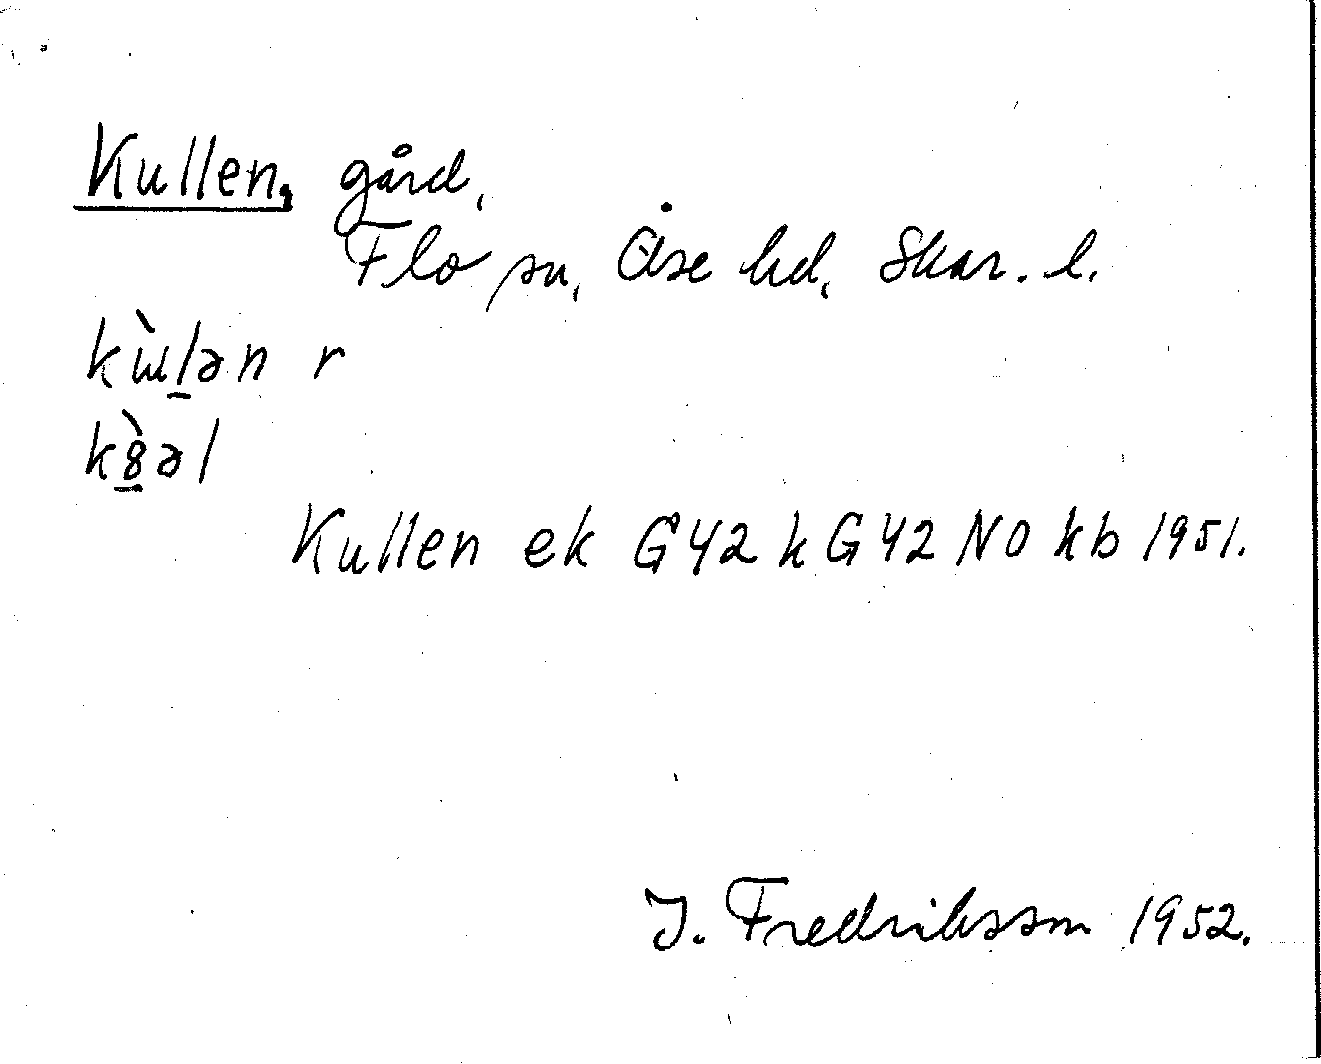 Kullen, gård,
Flo sn, Åse hd, Skar. l.
kɯ̀l̠ən r
k8̠̀əl
Kullen ek G42 k G42 NO kb 1951.
J. Fredriksson 1952.